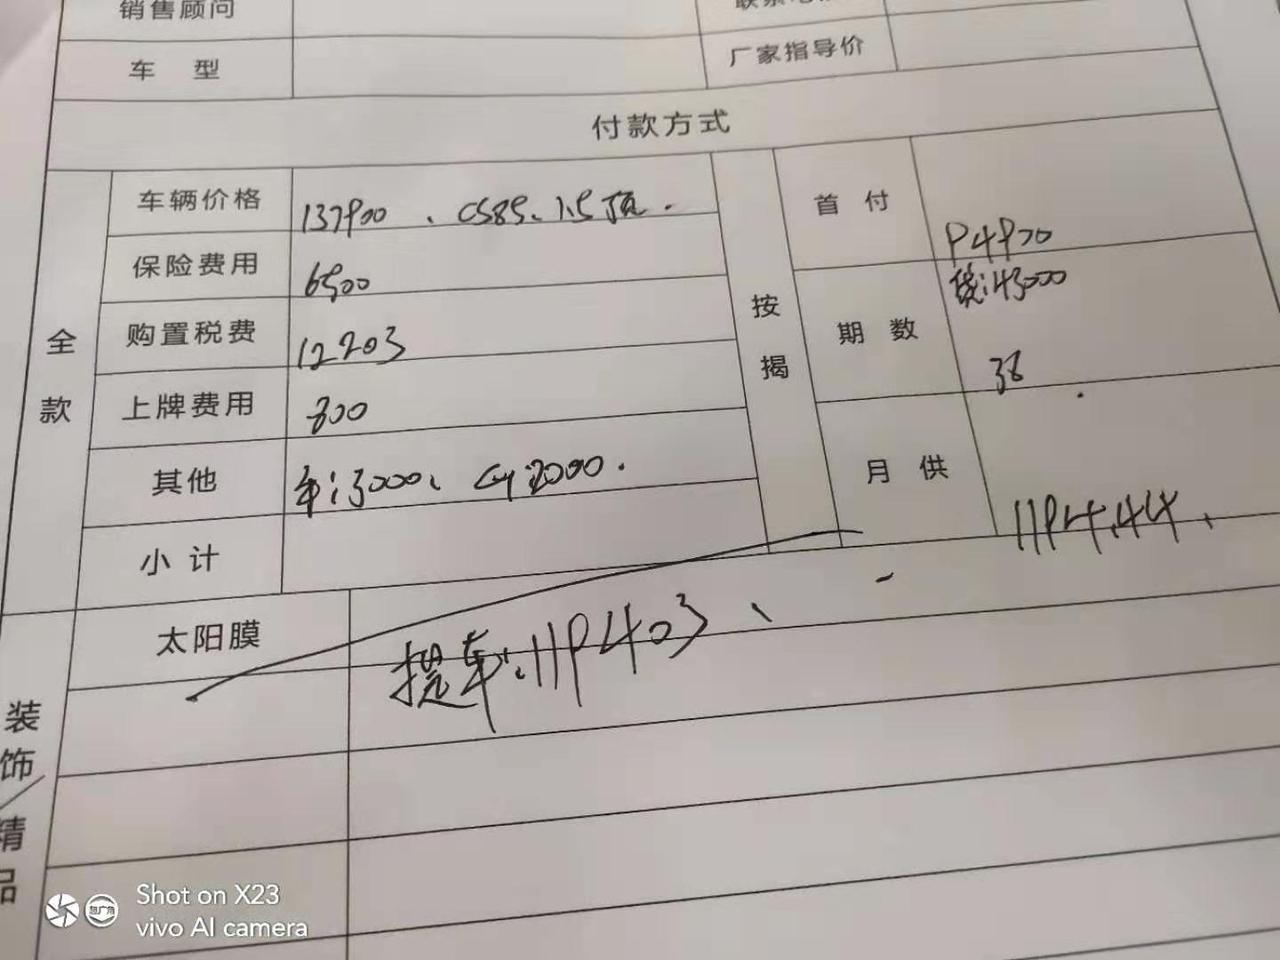 销售顾问
车 型
厂家指导价
付款方式
全款
车辆价格 137900、CS85、1.5顶.
保险费用 6500
购置税费 12203
上牌费用 800
其他 :3000、 :2000.
小计
按揭
首付 94970
贷:43000
期数 36
月供 1194.44、
装饰/精品
太阳膜
提车:119403、
Shot on X23
vivo AI camera